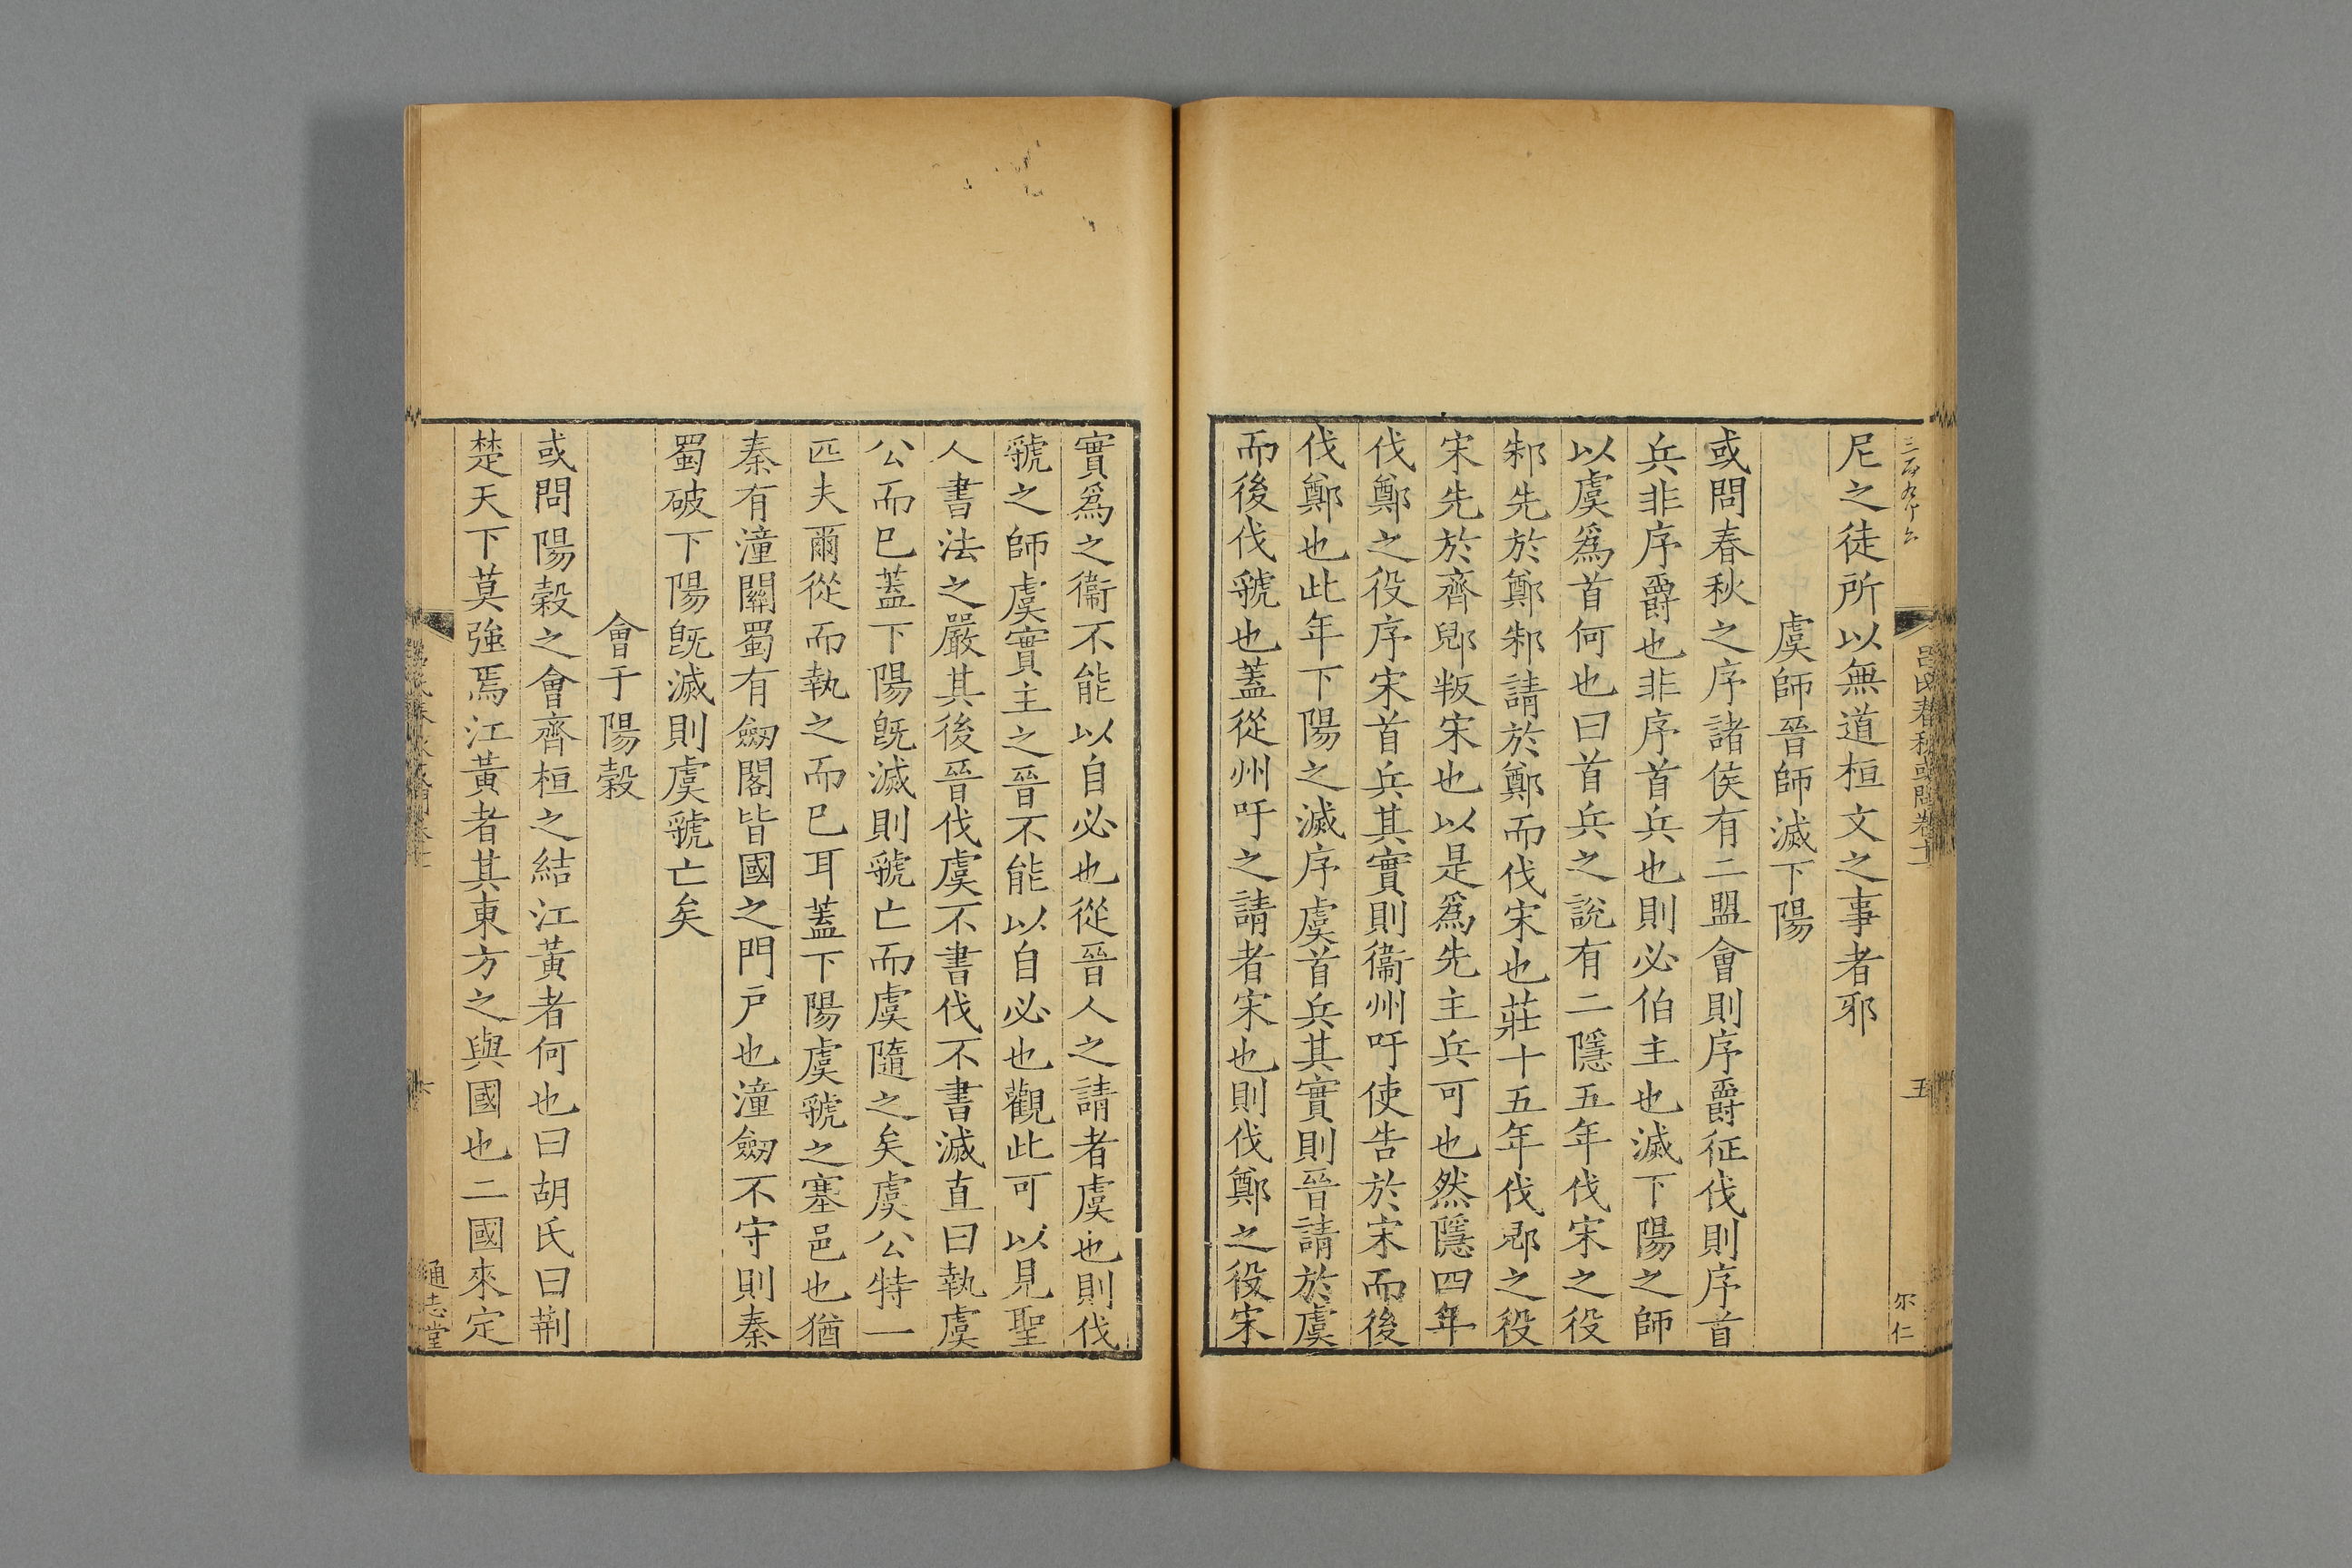 尼之徒所以無道桓文之事者邪
虞師晉師滅下陽
或問春秋之序諸侯有二盟會則序爵征伐則序首
兵非序爵也非序首兵也則必伯主也滅下陽之師
以虞爲首何也曰首兵之說有二隱五年伐宋之役
邾先於鄭邾請於鄭而伐宋也莊十五年伐郳之役
宋先於齊郳叛宋也以是爲先主兵可也然隱四年
伐鄭之役序宋首兵其實則衞州吁使告於宋而後
伐鄭也此年下陽之滅序虞首兵其實則晉請於虞
而後伐虢也蓋從州吁之請者宋也則伐鄭之役宋
實爲之衞不能以自必也從晉人之請者虞也則伐
虢之師虞實主之晉不能以自必也觀此可以見聖
人書法之嚴其後晉伐虞不書伐不書滅直曰執虞
公而巳蓋下陽旣滅則虢亡而虞隨之矣虞公特一
匹夫爾從而執之而巳耳蓋下陽虞虢之塞邑也猶
秦有潼關蜀有劒閣皆國之門戸也潼劒不守則秦
蜀破下陽旣滅則虞虢亡矣
會于陽穀
或問陽穀之會齊桓之結江黃者何也曰胡氏曰荆
楚天下莫強焉江黃者其東方之與國也二國來定
通志堂
呂氏春秋或問卷十
五
尔仁